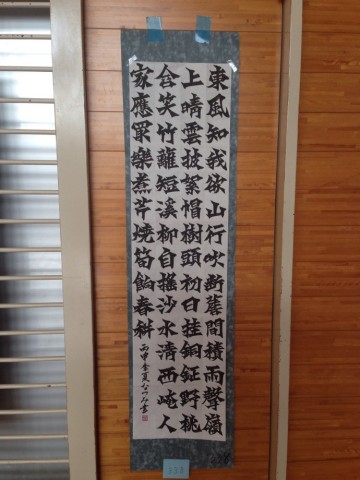 東風知我欲山行吹断簷間積雨聲嶺
上晴雲披絮帽樹頭初日挂銅鉦野桃
含笑竹籬短溪柳自搖沙水清西崦人
家應最樂煮芹燒筍餉春耕
丙申季夏なつみ書